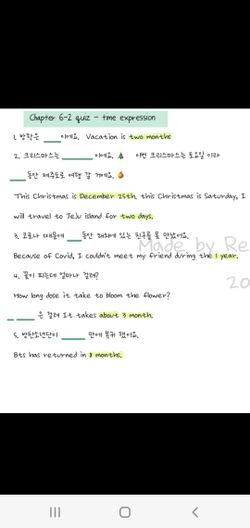 Chapter 6-2 quiz - time expression
1. 방학은 ____이에요. Vacation is two months
2. 크리스마스는 ________ 이에요. 🎄 이번 크리스마스는 토요일 이라
____동안 제주도로 여행 갈 거에요. 🍊
This Christmas is December 25th. this Christmas is Saturday, I
will travel to Jeju island for two days.
3. 코로나 때문에 ____동안 대학에 있는 친구를 못 만났어요.
Made by Re
Because of Covid, I couldn't meet my friend during the 1 year.
20
4. 꽃이 피는데 얼마나 걸려?
How long dose it take to bloom the flower?
__ ____ 은 걸려 It takes about 3 month.
5. 방탄소년단이 ____ 만에 복귀 했어요.
Bts has returned in 8 months.